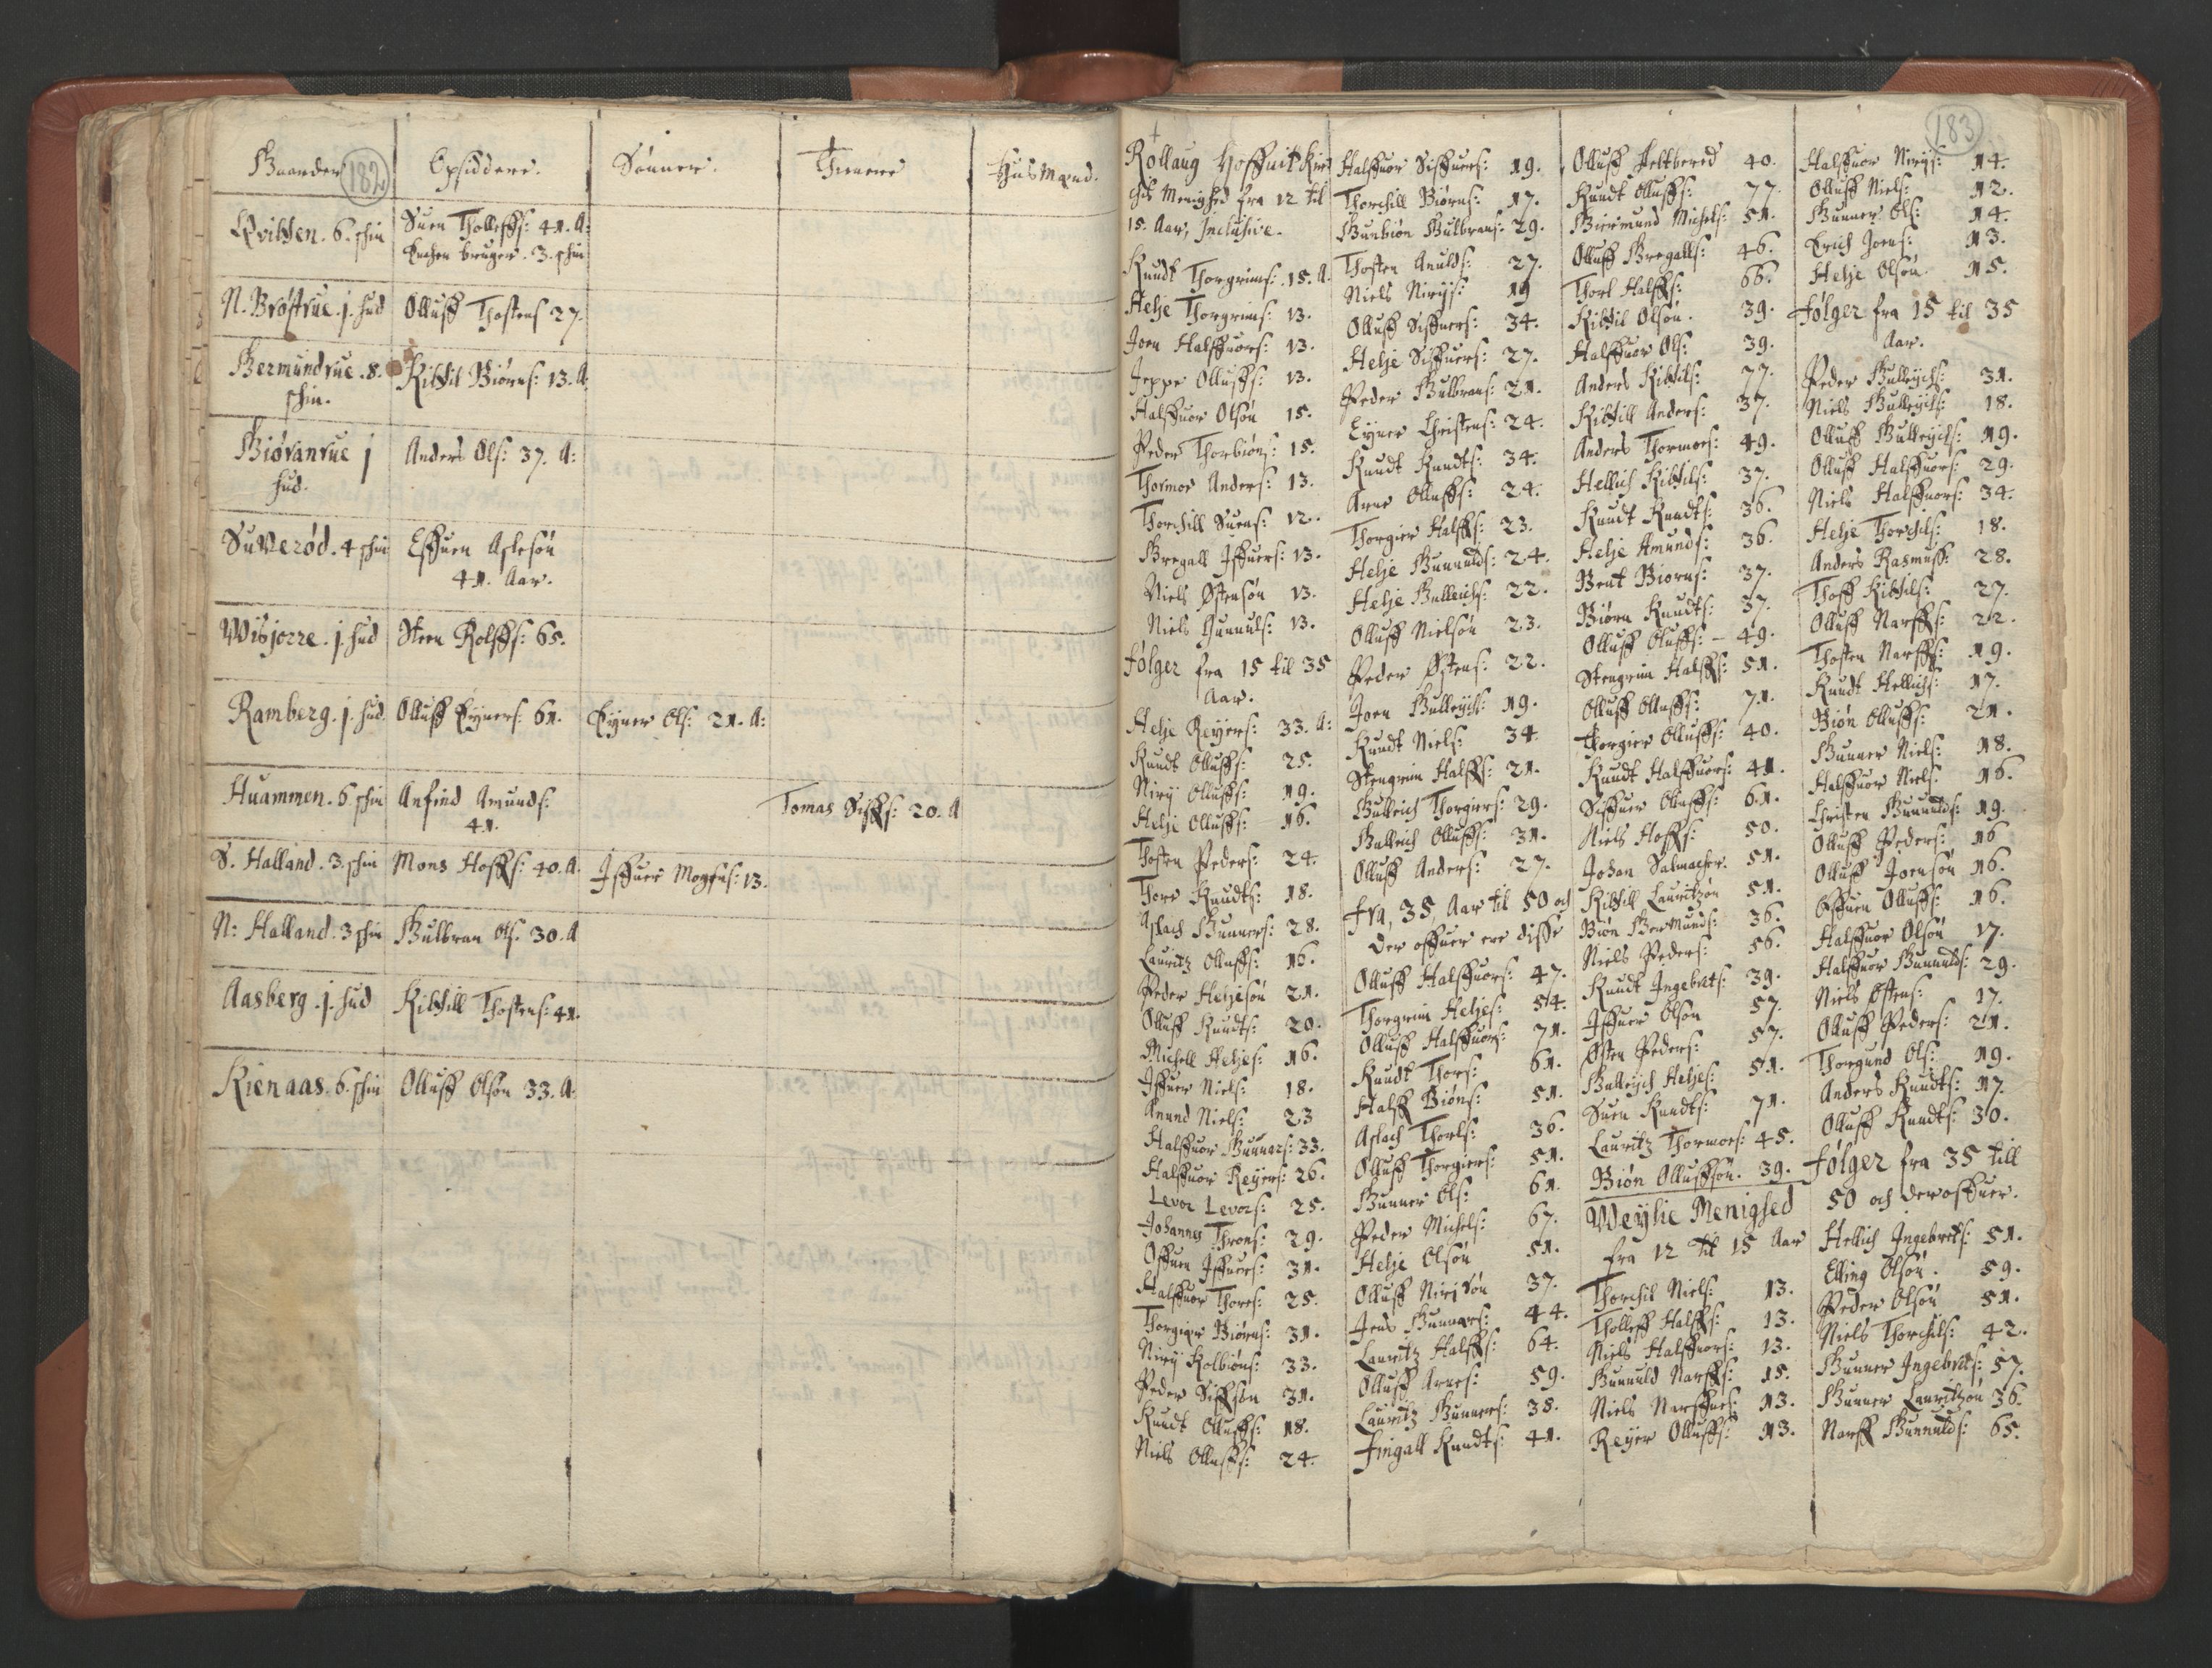 182
Gaarder
Opsiddere.
Sønner.
Thienere
HusMænd.
Qvilsen. 6. schin
Suen Tholleffs: 41. A:
Enchen bruger. 3. schin
N. Brøstrue. j. hud
Olluff Thostens 27.
Germundrue. 8. schin.
Kittil Biørns: 13. A:
Giøranrue j hud.
Anders Ols: 37. A:
SuVerød. 4 schin
Effuen Aslesøn
41. Aar.
Wisjorre. j. hud
Steen Rolffs: 65.
Ramberg. j. hud
Olluff Eyners: 61.
Eyner Ols: 21. A:
Huammen. 6 schin
Anfind Amunds:
41.
Tomas Siffs: 20. A
S. Halland. 3. schin
Mons Hoffs: 40. A.
Iffuer Mogens: 13.
N: Halland. 3 schin
Gulbran Ols. 30. A
Aasberg. j. hud
Kittill Thostens: 41.
Kienaas. 6. schin
Olluff Olsøn 33. A:
183
Rollaug Hoffuit Kir
chis Menighed fra 12 til
15. Aar, Inclusive.
Knudt Thorgrims: 15. A.
Helje Thorgrims: 13.
Joen Halffuors: 13.
Jeppe Olluffs: 13.
Halffuor Olsøn 15.
Peder Thorbiøns: 15.
Thormoe Anders: 13.
Thorchill Suens: 12.
Gregall Iffuers: 13.
Niels Østensøn 13.
Niels Gunnuls: 13.
Følger fra 15 til 35
Aar.
Helje Reyers: 33. A:
Knudt Olluffs: 25.
Nirij Olluffs: 19.
Helje Olluffs: 16.
Thosten Peders: 24.
Thore Knudts: 18.
Aslach Gunners: 28.
Lauritz Olluffs: 16.
Peder Heljesøn 21.
Olluff Knudts: 20.
Michell Heljes: 16.
Iffuer Niels: 18.
Anund Niels: 23
Halffuor Gunnars: 33.
Halffuor Reyers: 26.
Levor Levors: 25.
Johannes Throns: 29.
Offuen Iffuers: 31.
Halffuor Thores: 25.
Thorgier Biørns: 31.
Nirij Kolbiøns: 33.
Peder Siffsøn 31.
Knudt Olluffs: 18.
Niels Olluffs: 24.
Halffuor Siffuers: 19.
Thorchill Biørns: 17.
Gunbiøn Gulbrans: 29.
Thosten Anulds: 27.
Niels Nirijs: 19
Olluff Siffuers: 34.
Helje Siffuers: 27.
Peder Gulbrans: 21.
Eyner Christens: 24.
Knudt Knudts: 34.
Arne Olluffs: 24.
Thorgier Halffs: 23.
Helje Gunnulds: 24.
Helje Gulleichs: 22.
Olluff Nielsøn 23.
Peder Østens: 22.
Joen Gulleychs: 19.
Knudt Niels: 34
Stengrim Halffs: 21.
Gulleich Thorgiers: 29.
Gulleich Olluffs: 31.
Olluff Anders: 27.
Fra, 35, Aar til 50 och
der offuer ere disse
Olluff Halffuors: 47.
Thorgrim Heljes: 54.
Olluff Halffuors: 71.
Knudt Thors: 61.
Halff Biøns: 51.
Aslach Thorls: 36.
Olluff Thorgiers: 51.
Gunner Ols: 61.
Peder Michels: 67.
Helje Olsøn 51.
Olluff Nirisøn 37.
Jens Gunnars: 44.
Lauritz Halffs: 64.
Olluff Arnes: 59.
Lauritz Gunners: 38.
Fingall Knudts: 41.
Olluff Heltbered 40.
Knudt Olluffs: 77.
Giermund Michels: 51.
Olluff Gregalls: 46.
Thorl Halffs: 66.
Kittil Olsøn. 39.
Halffuor Ols: 39.
Anders Kittils: 77.
Kittill Anders: 37.
Anders Thormoes: 49.
Hellich Kittils: 37.
Knudt Knudts: 36.
Helje Amunds: 36.
Bent Biørns: 37.
Biørn Knudts: 37.
Olluff Oluffs: - 49.
Stengrim Halffs: 51.
Olluff Olluffs: 71.
Thorgier Olluffs: 40.
Knudt Halffuors: 41.
Siffuer Olluffs: 61.
Niels Hoffs: 50.
Johan Salmacher. 51.
Kittill Lauritzøn 51.
Biøn GerMunds: 36.
Niels Peders: 56.
Knudt Ingebrets: 39.
Iffuer Olsøn 57.
Østen Peders: 57.
Gulleych Heljes: 51.
Suen Knudts: 71.
Lauritz Thormoes: 45.
Biøn Olluffsøn. 39.
Weylie Menighed
fra 12 til 15 Aar
Thorchil Niels: 13.
Tholleff Halffs: 13.
Niels Halffuors: 13.
Gunnuld Narffs: 15.
Niels Narffues: 13.
Reyer Olluffs: 13.
Halffuor Nirijs: 14.
Olluff Niels: 12.
Gunner Ols: 14.
Erich Joens: 13.
Helje Olsøn. 15.
Følger fra 15 til 35
Aar.
Peder Gulleychs: 31.
Niels Gulleychs: 18.
Olluff Gulleychs: 19.
Olluff Halffuors: 29.
Niels Halffuors: 34.
Helje Thorchils: 18.
Anders Rasmuss: 28.
Thoff Kittils: 27.
Olluff Narffs: 22.
Thosten Narffs: 19.
Knudt Hellichs: 17.
Biøn Olluffs: 21.
Gunner Niels: 18.
Halffuor Niels: 16.
Christen Gunnulds: 19.
Olluff Peders: 16
Olluff Joensøn 16.
Offuen Olluffs: 16.
Halffuor Olsøn 17.
Halffuor Gunnulds: 29.
Niels Østens: 17.
Olluff Peders: 21.
Thorgund Ols: 19.
Anders Knudts: 17.
Olluff Knudts: 30.
Følger fra 35 till
50 och deroffuer.
Hellich Ingebrets: 51.
Elling Olsøn. 59.
Peder Olsøn 51.
Niels Thorchils: 42.
Gunner Ingebrets: 57.
Gunner Lauritzøn 36.
Narff Gunnulds: 65.